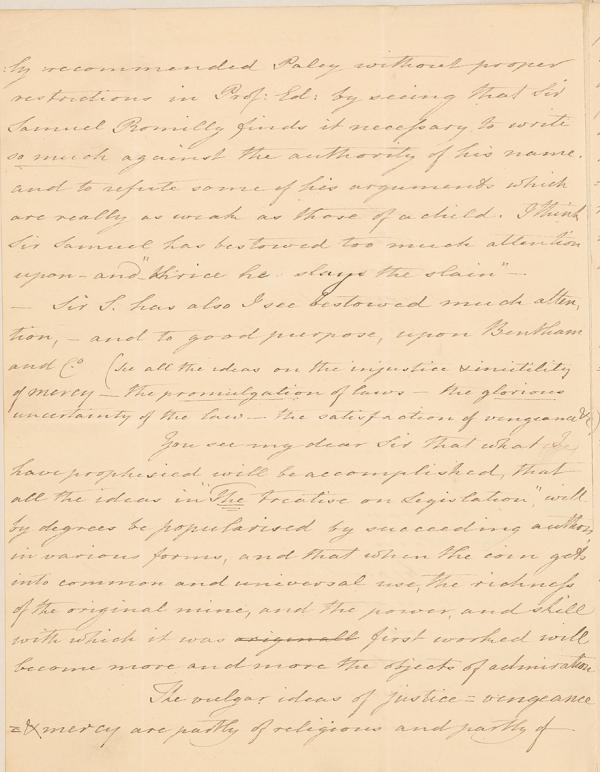 ly recommended Paley without proper
restrictions in Prof: Ed: by seeing that Sir
Samuel Romilly finds it necessary to write
so much against the authority of his name.
and to refute some of his arguments which
are really as weak as those of a child. I think
Sir Samuel has bestowed too much attention
upon - and "thrice he slays the slain" -
- Sir S. has also I see bestowed much atten,
tion, - and to good purpose, upon Bentham
and Co (see all the ideas on the injustice & inutility
of mercy - the promulgation of laws - the glorious
uncertainty of the law - the satisfaction of vengeance &c)
You see my dear Sir that what I
have prophisied will be accomplished, that
all the ideas in "The treatise on Legislation", will
by degrees be popularised by succeeding authors
in various forms, and that when the coin gets
into common and universal use, the richness
of the original mine, and the power and skill
with which it was originall first worked will
become more and more the objects of admiration
The vulgar ideas of justice = vengeance
= & mercy are partly of religious and partly of